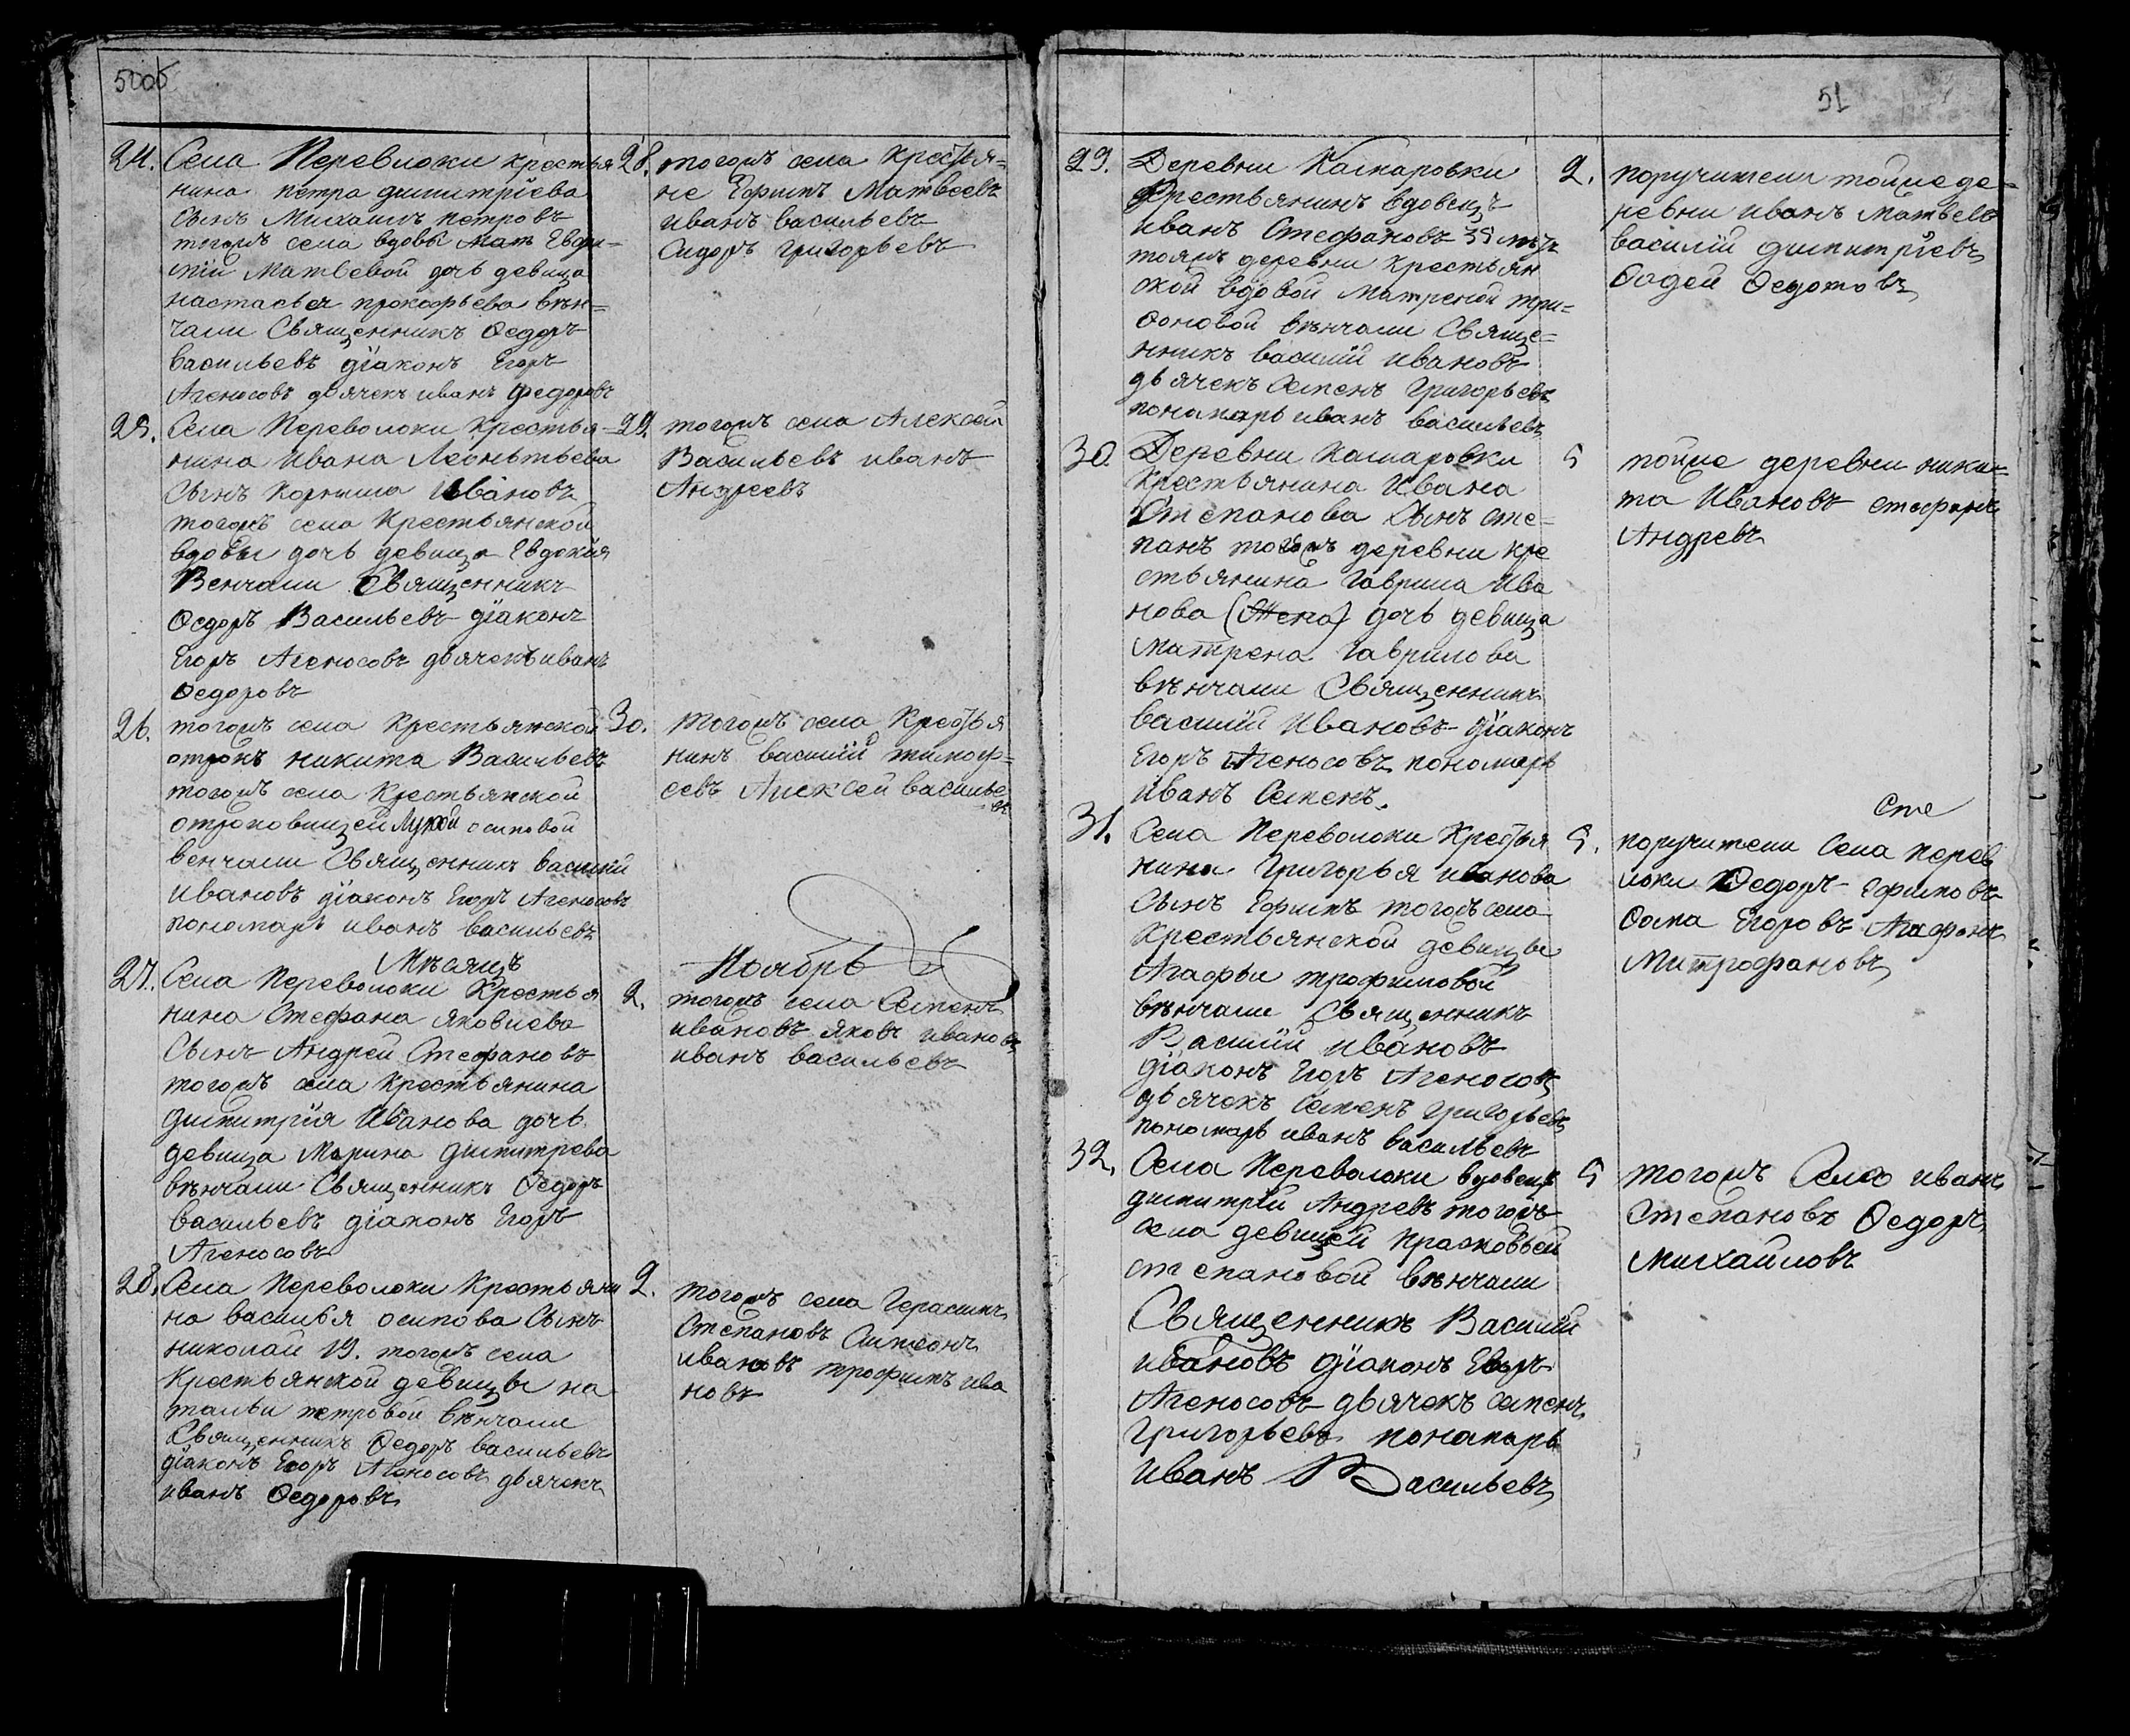 50об
24. Села Переволоки крестья
нина петра димитрїева
Сынъ Михаилъ петровъ
тогожъ села вдовы мат Евфи=
мїй Матвевой дочь девица
настасья прокофьева вѣн=
чали Священникъ Ѳедоръ
васильевъ дїаконъ Егоръ
Агеносовъ дьячекъ иванъ федоровъ
28. тогожъ села крестья=
не Ефимъ Матвеевъ
иванъ васильевъ
Сидоръ григорьевъ
25. Села Переволоки крестья=
нина Ивана Леонтьева
Сынъ корнила Ивановъ
тогожъ села крестьянской
вдовы дочь девица Евдокїя
Венчали Священникъ
Ѳедоръ Васильевъ дїаконъ
Егоръ Агеносовъ дьячекъ иванъ
Ѳедоровъ
29. тогожъ села Алексей
Васильевъ иванъ
Андреевъ
26. тогожъ села крестьянской
отрокъ никита Васильевъ
тогожъ села крестьянской
отроковицей осиповой
венчали Священникъ василий
ивановъ дїаконъ Егоръ Агеносовъ
пономарь иванъ васильевъ
30. тогожъ села крестья
нинъ василїй тимоф=
еевъ Алексей василье
въ
Мѣсяцъ Ноябрь
27. Села Переволоки крестья
нина Стефана яковлева
Сынъ Андрей Стефановъ
тогожъ села крестьянина
димитрїя Иванова дочь
девица Марина димитрева
вѣнчали Священникъ Ѳедоръ
васильевъ дїаконъ Егоръ
Агеносовъ
2. тогожъ села Семенъ
ивановъ яковъ ивановъ
иванъ васильевъ
28. Села Переволоки крестьяни
на василья осипова Сынъ
николай 19. тогожъ села
крестьянской девицы на
тальи петровой вѣнчали
Священникъ Ѳедоръ васильевъ
дїаконъ Егоръ Агеносовъ дьячекъ
иванъ Ѳедоровъ
2. тогожъ села Герасимъ
Степановъ Симеонъ
ивановъ трофимъ ива
новъ
51
29. Деревни Кашаровки
крестьянинъ вдовецъ
иванъ Стефановъ 35 лѣтъ
тояжъ деревни крестьян
ской вдовой матреной три=
ѳоновой вѣнчали Свяще=
нникъ василїй ивановъ
дьячекъ Семенъ Григорьевъ
пономарь иванъ васильевъ
2. поручители тойже де=
ревни иванъ матвевъ
василїй димитрїевъ
Ѳадей Ѳедотовъ
30. Деревни кашаровки
крестьянина Ивана
Степанова Сынъ сте=
панъ тогожъ деревни кре
стьянина гаврила Ива
нова (Жена) дочь девица
матрена гаврилова
вѣнчали Священникъ
василїй Ивановъ дїаконъ
Егоръ Агеносовъ пономарь
иванъ Семенъ.
5 тойже деревни ники=
та Ивановъ стефанъ
Андревъ
31. Села Переволоки крестья
нина Григорья иванова
Сынъ Ефимъ тогожъ села
крестьянской девицы
Агафьи трофимовой
вѣнчали Священникъ
Василїй ивановъ
дїаконъ Егоръ Агеносовъ
дьячекъ Семенъ григорьевъ
пономарь иванъ васильевъ
Сте
5. поручители Села перев
локи Ѳедоръ Ефимовъ
Ѳома Егоровъ Агафонъ
Митрофановъ
32. Села Переволоки вдовецъ
димитрїй Андревъ тогожъ
села девицей прасковьей
степановой вѣнчали
Священникъ Василїй
ивановъ дїаконъ Егоръ
Агеносовъ дьячекъ семенъ
григорьевъ понамарь
иванъ Васильевъ
5 тогожъ Села иванъ
Степановъ Ѳедоръ
михайловъ